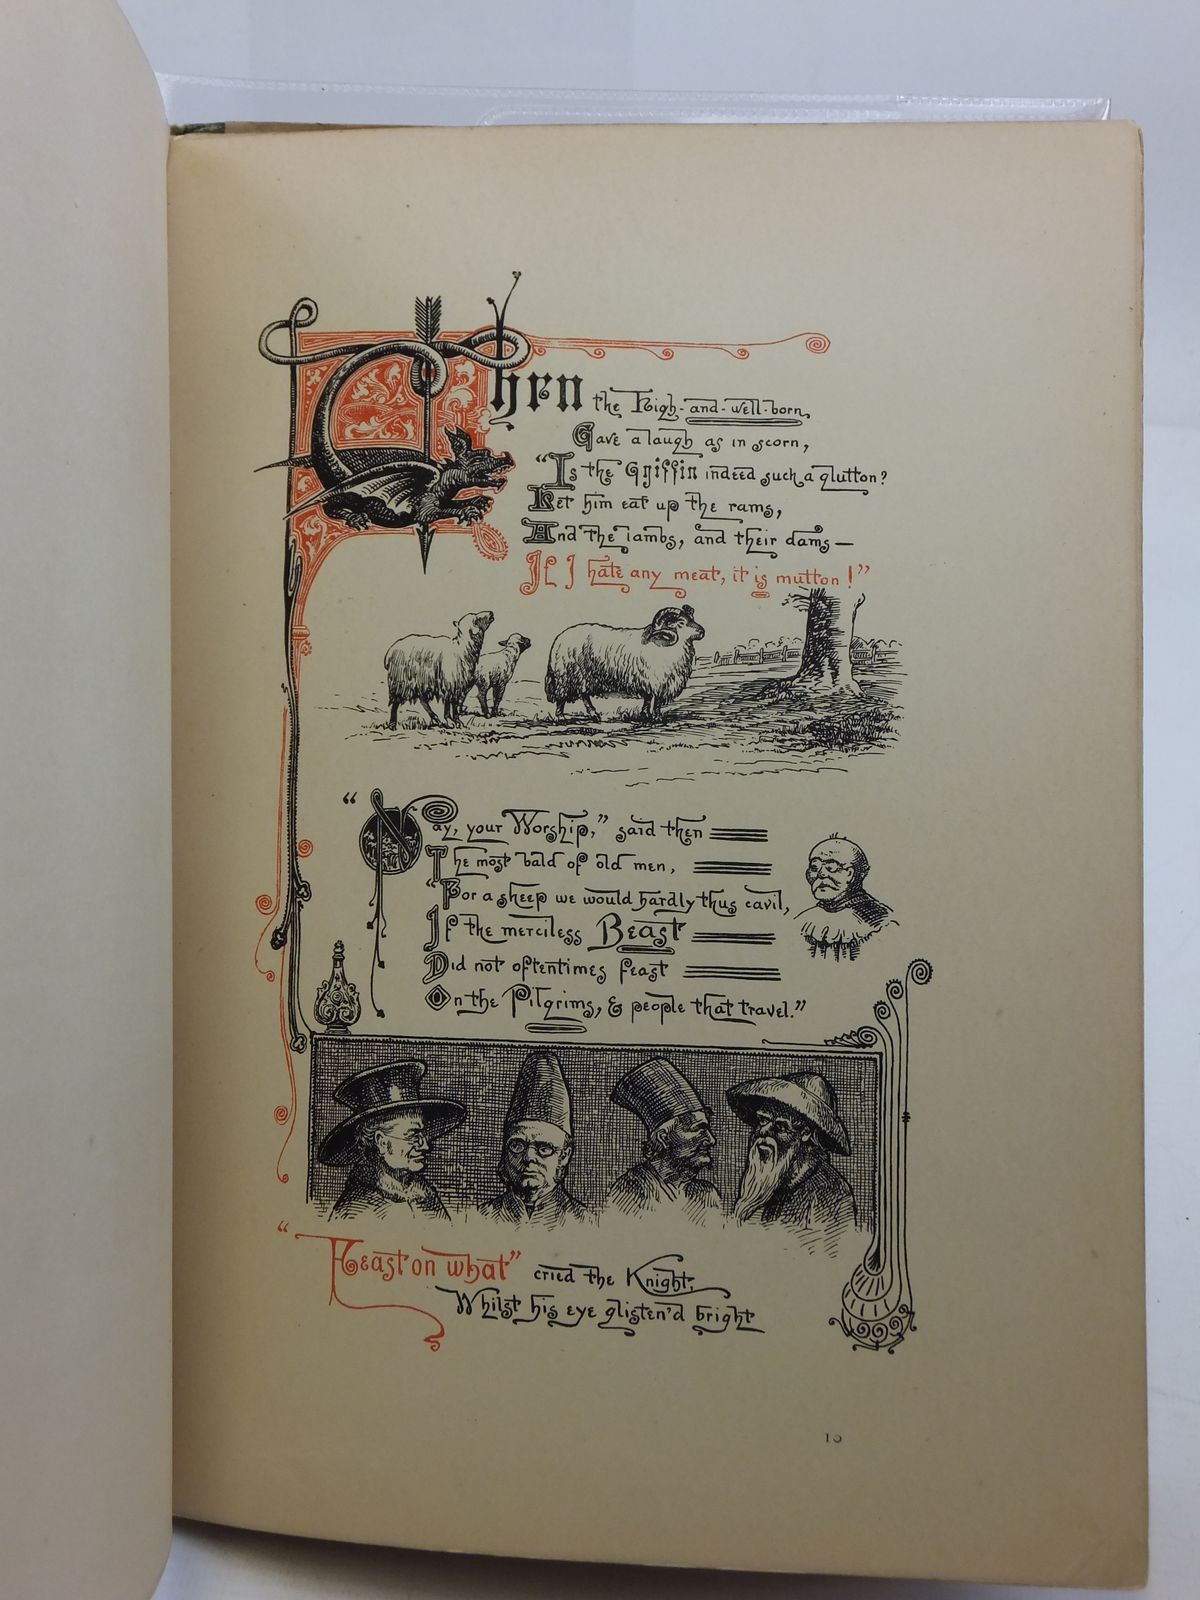 Then the High-and-well-born
Gave a laugh as in scorn,
"Is the Griffin indeed such a glutton?
Let him eat up the rams,
And the lambs, and their dams—
If I hate any meat, it is mutton!"
"Nay, your Worship," said then
The most bald of old men,
"For a sheep we would hardly thus cavil,
If the merciless Beast
Did not oftentimes feast
On the Pilgrims, & people that travel."
"Feast on what" cried the Knight,
Whilst his eye glisten'd bright